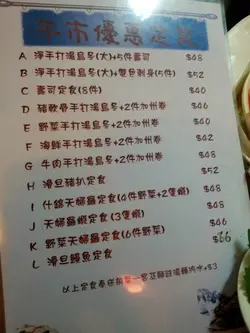 午市優惠定食
A 淨手打湯烏冬(大)+5件壽司 $48
B 淨手打湯烏冬(大)+雙色刺身(5件) $52
C 壽司定食(8件) $40
D 豬軟骨手打湯烏冬+2件加州卷 $50
E 野菜手打湯烏冬+2件加州卷 $45
F 海鮮手打湯烏冬+2件加州卷 $48
G 牛肉手打湯烏冬+2件加州卷 $48
H 滑旦豬扒定食 $52
I 什錦天婦羅定食(4件野菜+2隻蝦) $48
J 天婦羅蝦定食(3隻蝦) $48
K 野菜天婦羅定食(6件野菜) $45
L 滑旦鰻魚定食 $66
以上定食奉送